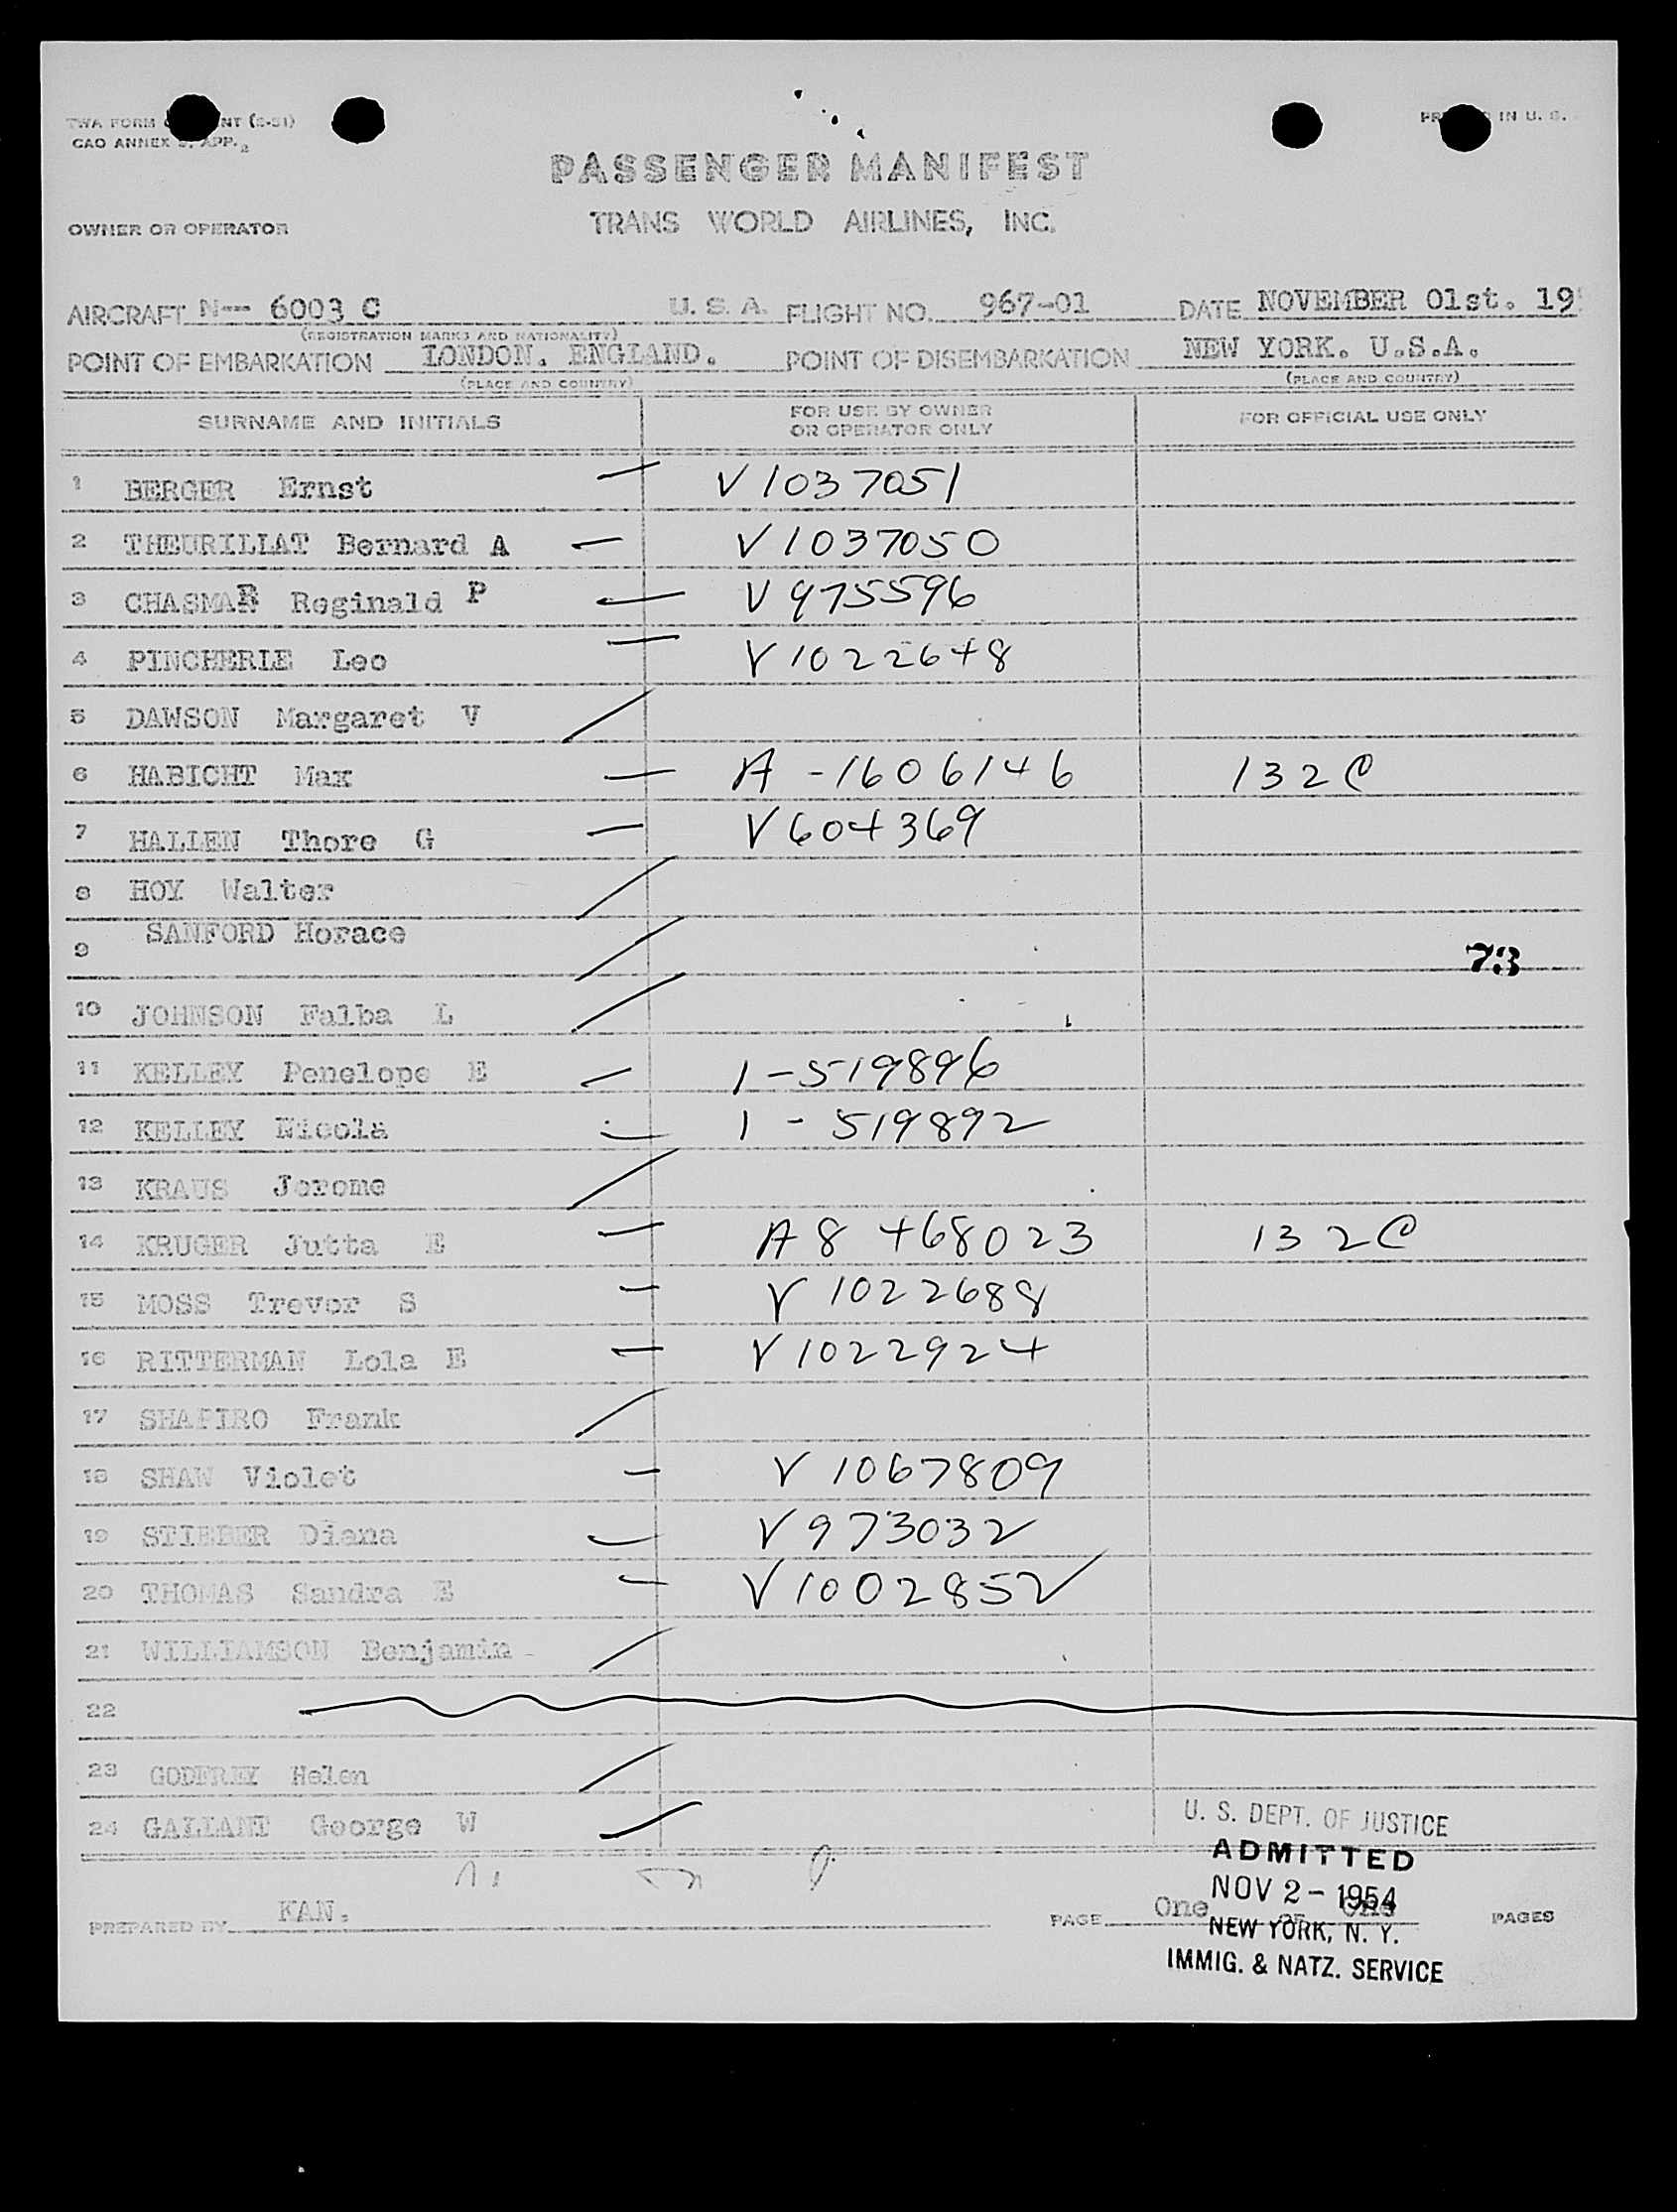 TWA FORM NT (2-51) PR IN U. S.
CAO ANNEX APP. 2
PASSENGER MANIFEST
OWNER OR OPERATOR TRANS WORLD AIRLINES, INC.
AIRCRAFT N-- 6003 C U. S. A. FLIGHT NO. 967-01 DATE NOVEMBER 01st. 19
(REGISTRATION MARKS AND NATIONALITY)
POINT OF EMBARKATION LONDON. ENGLAND. POINT OF DISEMBARKATION NEW YORK. U.S.A.
(PLACE AND COUNTRY) (PLACE AND COUNTRY)
SURNAME AND INITIALS FOR USE BY OWNER OR OPERATOR ONLY FOR OFFICIAL USE ONLY
1 BERGER Ernst — V1037051
2 THEURILLAT Bernard A — V1037050
3 CHASMAR Reginald P — V975596
4 PINCHERLE Leo — V1022648
5 DAWSON Margaret V /
6 HABICHT Max — A-1606146 132C
7 HALLEN Thore G — V604369
8 HOY Walter /
9 SANFORD Horace / 73
10 JOHNSON Falba L /
11 KELLEY Penelope E — 1-519896
12 KELLEY Nicola — 1-519892
13 KRAUS Jerome /
14 KRUGER Jutta E — A8 468023 132C
15 MOSS Trevor S — V1022688
16 RITTERMAN Lola E — V1022924
17 SHAPIRO Frank /
18 SHAW Violet — V1067809
19 STIEBER Diana — V973032
20 THOMAS Sandra E — V1002852
21 WILLIAMSON Benjamin /
22
23 GODFREY Helen /
24 GALLANT George W /
U. S. DEPT. OF JUSTICE
ADMITTED
NOV 2 - 1954
NEW YORK, N. Y.
IMMIG. & NATZ. SERVICE
PREPARED BY KAN. PAGE One OF One PAGES